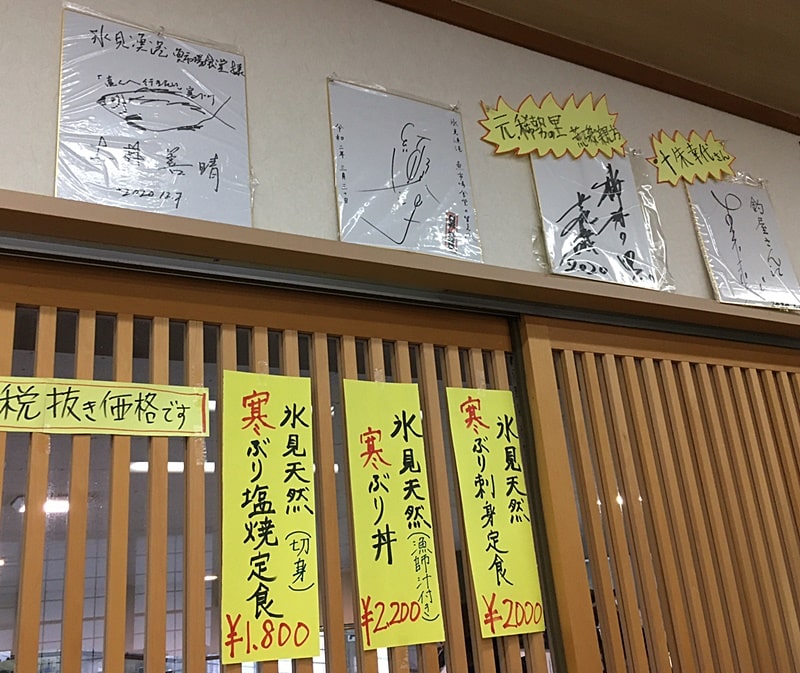 氷見漁港 魚市場食堂様
「直くへ行きたい 寒ブリ」
善晴
2020.12.9
令和二年三月三十日
氷見漁港 魚市場食堂
元稀勢の里 荒磯親方
稀勢の里
2020
十朱幸代さん
釣屋さん江
税抜き価格です
氷見天然(切身)
寒ぶり塩焼定食
¥1.800
氷見天然(漁師汁付き)
寒ぶり丼
¥2,200
氷見天然
寒ぶり刺身定食
¥2000